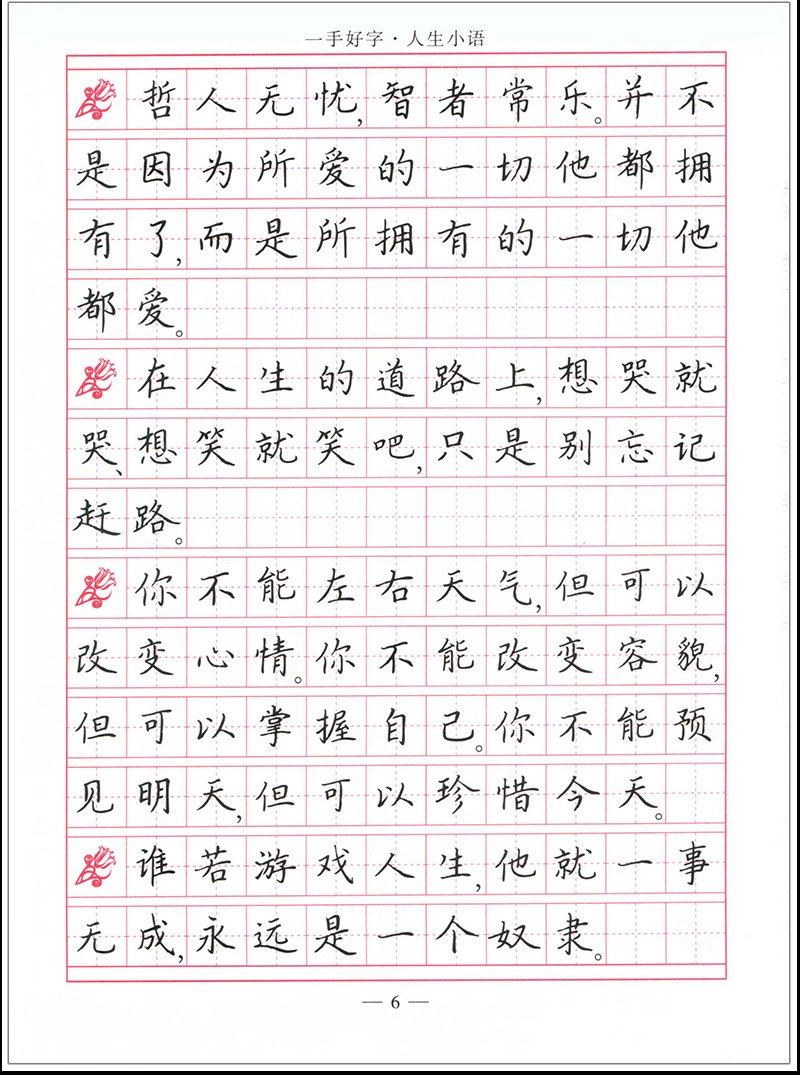 一手好字·人生小语
哲人无忧，智者常乐。并不
是因为所爱的一切他都拥
有了，而是所拥有的一切他
都爱。
在人生的道路上，想哭就
哭、想笑就笑吧，只是别忘记
赶路。
你不能左右天气，但可以
改变心情。你不能改变容貌，
但可以掌握自己。你不能预
见明天，但可以珍惜今天。
谁若游戏人生，他就一事
无成，永远是一个奴隶。
— 6 —